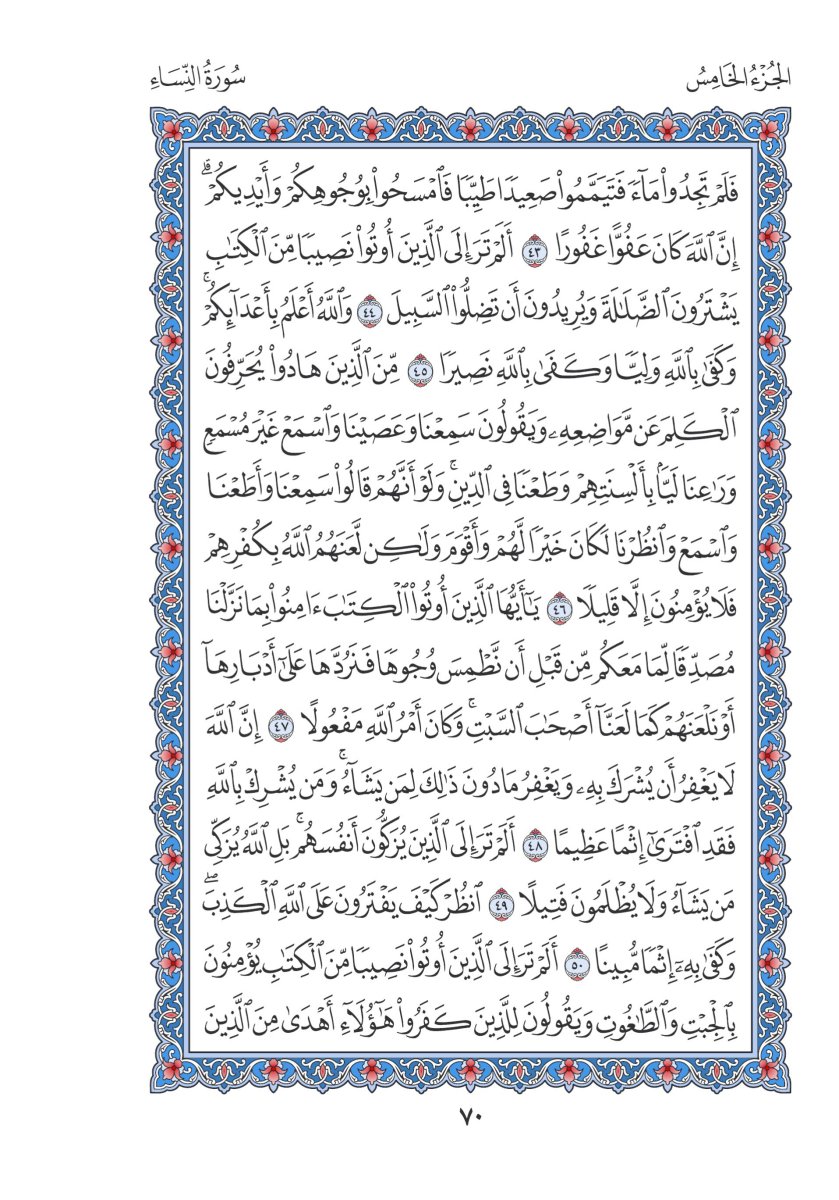 الجُزْءُ الخَامِسُ
سُورَةُ النِّسَاءِ
فَلَمْ تَجِدُوا۟ مَآءً فَتَيَمَّمُوا۟ صَعِيدًا طَيِّبًا فَٱمْسَحُوا۟ بِوُجُوهِكُمْ وَأَيْدِيكُمْ ۗ
إِنَّ ٱللَّهَ كَانَ عَفُوًّا غَفُورًا ٤٣ أَلَمْ تَرَ إِلَى ٱلَّذِينَ أُوتُوا۟ نَصِيبًا مِّنَ ٱلْكِتَٰبِ
يَشْتَرُونَ ٱلضَّلَٰلَةَ وَيُرِيدُونَ أَن تَضِلُّوا۟ ٱلسَّبِيلَ ٤٤ وَٱللَّهُ أَعْلَمُ بِأَعْدَآئِكُمْ ۚ
وَكَفَىٰ بِٱللَّهِ وَلِيًّا وَكَفَىٰ بِٱللَّهِ نَصِيرًا ٤٥ مِّنَ ٱلَّذِينَ هَادُوا۟ يُحَرِّفُونَ
ٱلْكَلِمَ عَن مَّوَاضِعِهِۦ وَيَقُولُونَ سَمِعْنَا وَعَصَيْنَا وَٱسْمَعْ غَيْرَ مُسْمَعٍ
وَرَٰعِنَا لَيًّۢا بِأَلْسِنَتِهِمْ وَطَعْنًا فِى ٱلدِّينِ ۚ وَلَوْ أَنَّهُمْ قَالُوا۟ سَمِعْنَا وَأَطَعْنَا
وَٱسْمَعْ وَٱنظُرْنَا لَكَانَ خَيْرًا لَّهُمْ وَأَقْوَمَ وَلَٰكِن لَّعَنَهُمُ ٱللَّهُ بِكُفْرِهِمْ
فَلَا يُؤْمِنُونَ إِلَّا قَلِيلًا ٤٦ يَٰٓأَيُّهَا ٱلَّذِينَ أُوتُوا۟ ٱلْكِتَٰبَ ءَامِنُوا۟ بِمَا نَزَّلْنَا
مُصَدِّقًا لِّمَا مَعَكُم مِّن قَبْلِ أَن نَّطْمِسَ وُجُوهًا فَنَرُدَّهَا عَلَىٰٓ أَدْبَارِهَآ
أَوْ نَلْعَنَهُمْ كَمَا لَعَنَّآ أَصْحَٰبَ ٱلسَّبْتِ ۚ وَكَانَ أَمْرُ ٱللَّهِ مَفْعُولًا ٤٧ إِنَّ ٱللَّهَ
لَا يَغْفِرُ أَن يُشْرَكَ بِهِۦ وَيَغْفِرُ مَا دُونَ ذَٰلِكَ لِمَن يَشَآءُ ۚ وَمَن يُشْرِكْ بِٱللَّهِ
فَقَدِ ٱفْتَرَىٰٓ إِثْمًا عَظِيمًا ٤٨ أَلَمْ تَرَ إِلَى ٱلَّذِينَ يُزَكُّونَ أَنفُسَهُم ۚ بَلِ ٱللَّهُ يُزَكِّى
مَن يَشَآءُ وَلَا يُظْلَمُونَ فَتِيلًا ٤٩ ٱنظُرْ كَيْفَ يَفْتَرُونَ عَلَى ٱللَّهِ ٱلْكَذِبَ ۖ
وَكَفَىٰ بِهِۦٓ إِثْمًا مُّبِينًا ٥٠ أَلَمْ تَرَ إِلَى ٱلَّذِينَ أُوتُوا۟ نَصِيبًا مِّنَ ٱلْكِتَٰبِ يُؤْمِنُونَ
بِٱلْجِبْتِ وَٱلطَّٰغُوتِ وَيَقُولُونَ لِلَّذِينَ كَفَرُوا۟ هَٰٓؤُلَآءِ أَهْدَىٰ مِنَ ٱلَّذِينَ
٧٠